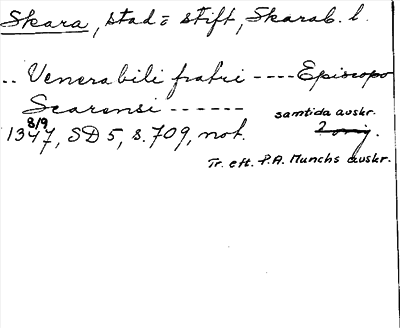 Skara, stad o stift, Skarab. l.
.. Venerabili fratri ---- Episcopo
Scarensi ------
samtida avskr.
8/9
1347, SD 5, s. 709, not. 2 orig.
Tr. eft. P.A. Munchs avskr.